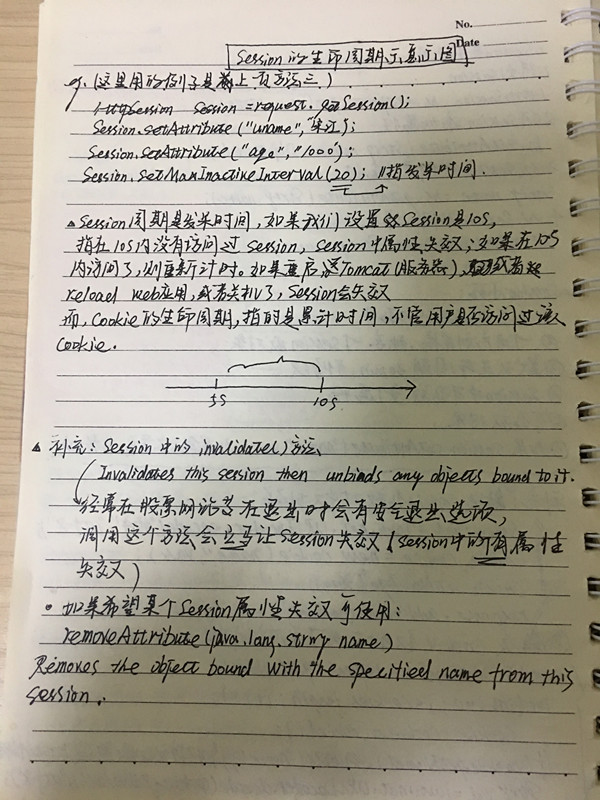 No.
Date
Session的生命周期示意图
eg. (这里用的例子是上页方法三)
HttpSession Session = request.getSession();
Session.setAttribute("uname","宋江");
Session.setAttribute("age","1000");
Session.setMaxInactiveInterval(20); //指发呆时间.
△Session周期是发呆时间,如果我们设置Session是10s,
指在10s内没有访问过session, session中属性失效;如果在10s
内访问了,则重新计时。如果重启Tomcat(服务器),或者
reload web应用,或者关机了, Session会失效
而, Cookie的生命周期,指的是累计时间,不管用户是否访问过该
Cookie.
5s 10s
△ 补充: Session中的invalidate()方法
(Invalidates this session then unbinds any objects bound to it.
经常在股票网站等在退出时会有安全退出选项,
调用这个方法会立马让Session失效(session中的所有属性
失效)
• 如果希望某个Session属性失效可使用:
removeAttribute(java.lang.string name)
Removes the object bound with the specified name from this
session.